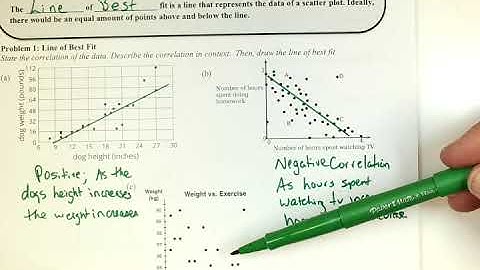 The Line of Best fit is a line that represents the data of a scatter plot. Ideally,
there would be an equal amount of points above and below the line.
Problem 1: Line of Best Fit
State the correlation of the data. Describe the correlation in context. Then, draw the line of best fit
(a)
dog weight (pounds)
112
96
80
64
48
32
16
0
6 9 12 15 18 21 24 27 30
dog height (inches)
Positive; As the
dogs height increases
the weight increases
(b)
Number of hours
spent doing
homework
A
D
B
Number of hours spent watching TV
Negative Correlation
As hours spent
watching tv
(c)
Weight vs. Exercise
Weight
(kg)
95
90
85
80
75
70
65